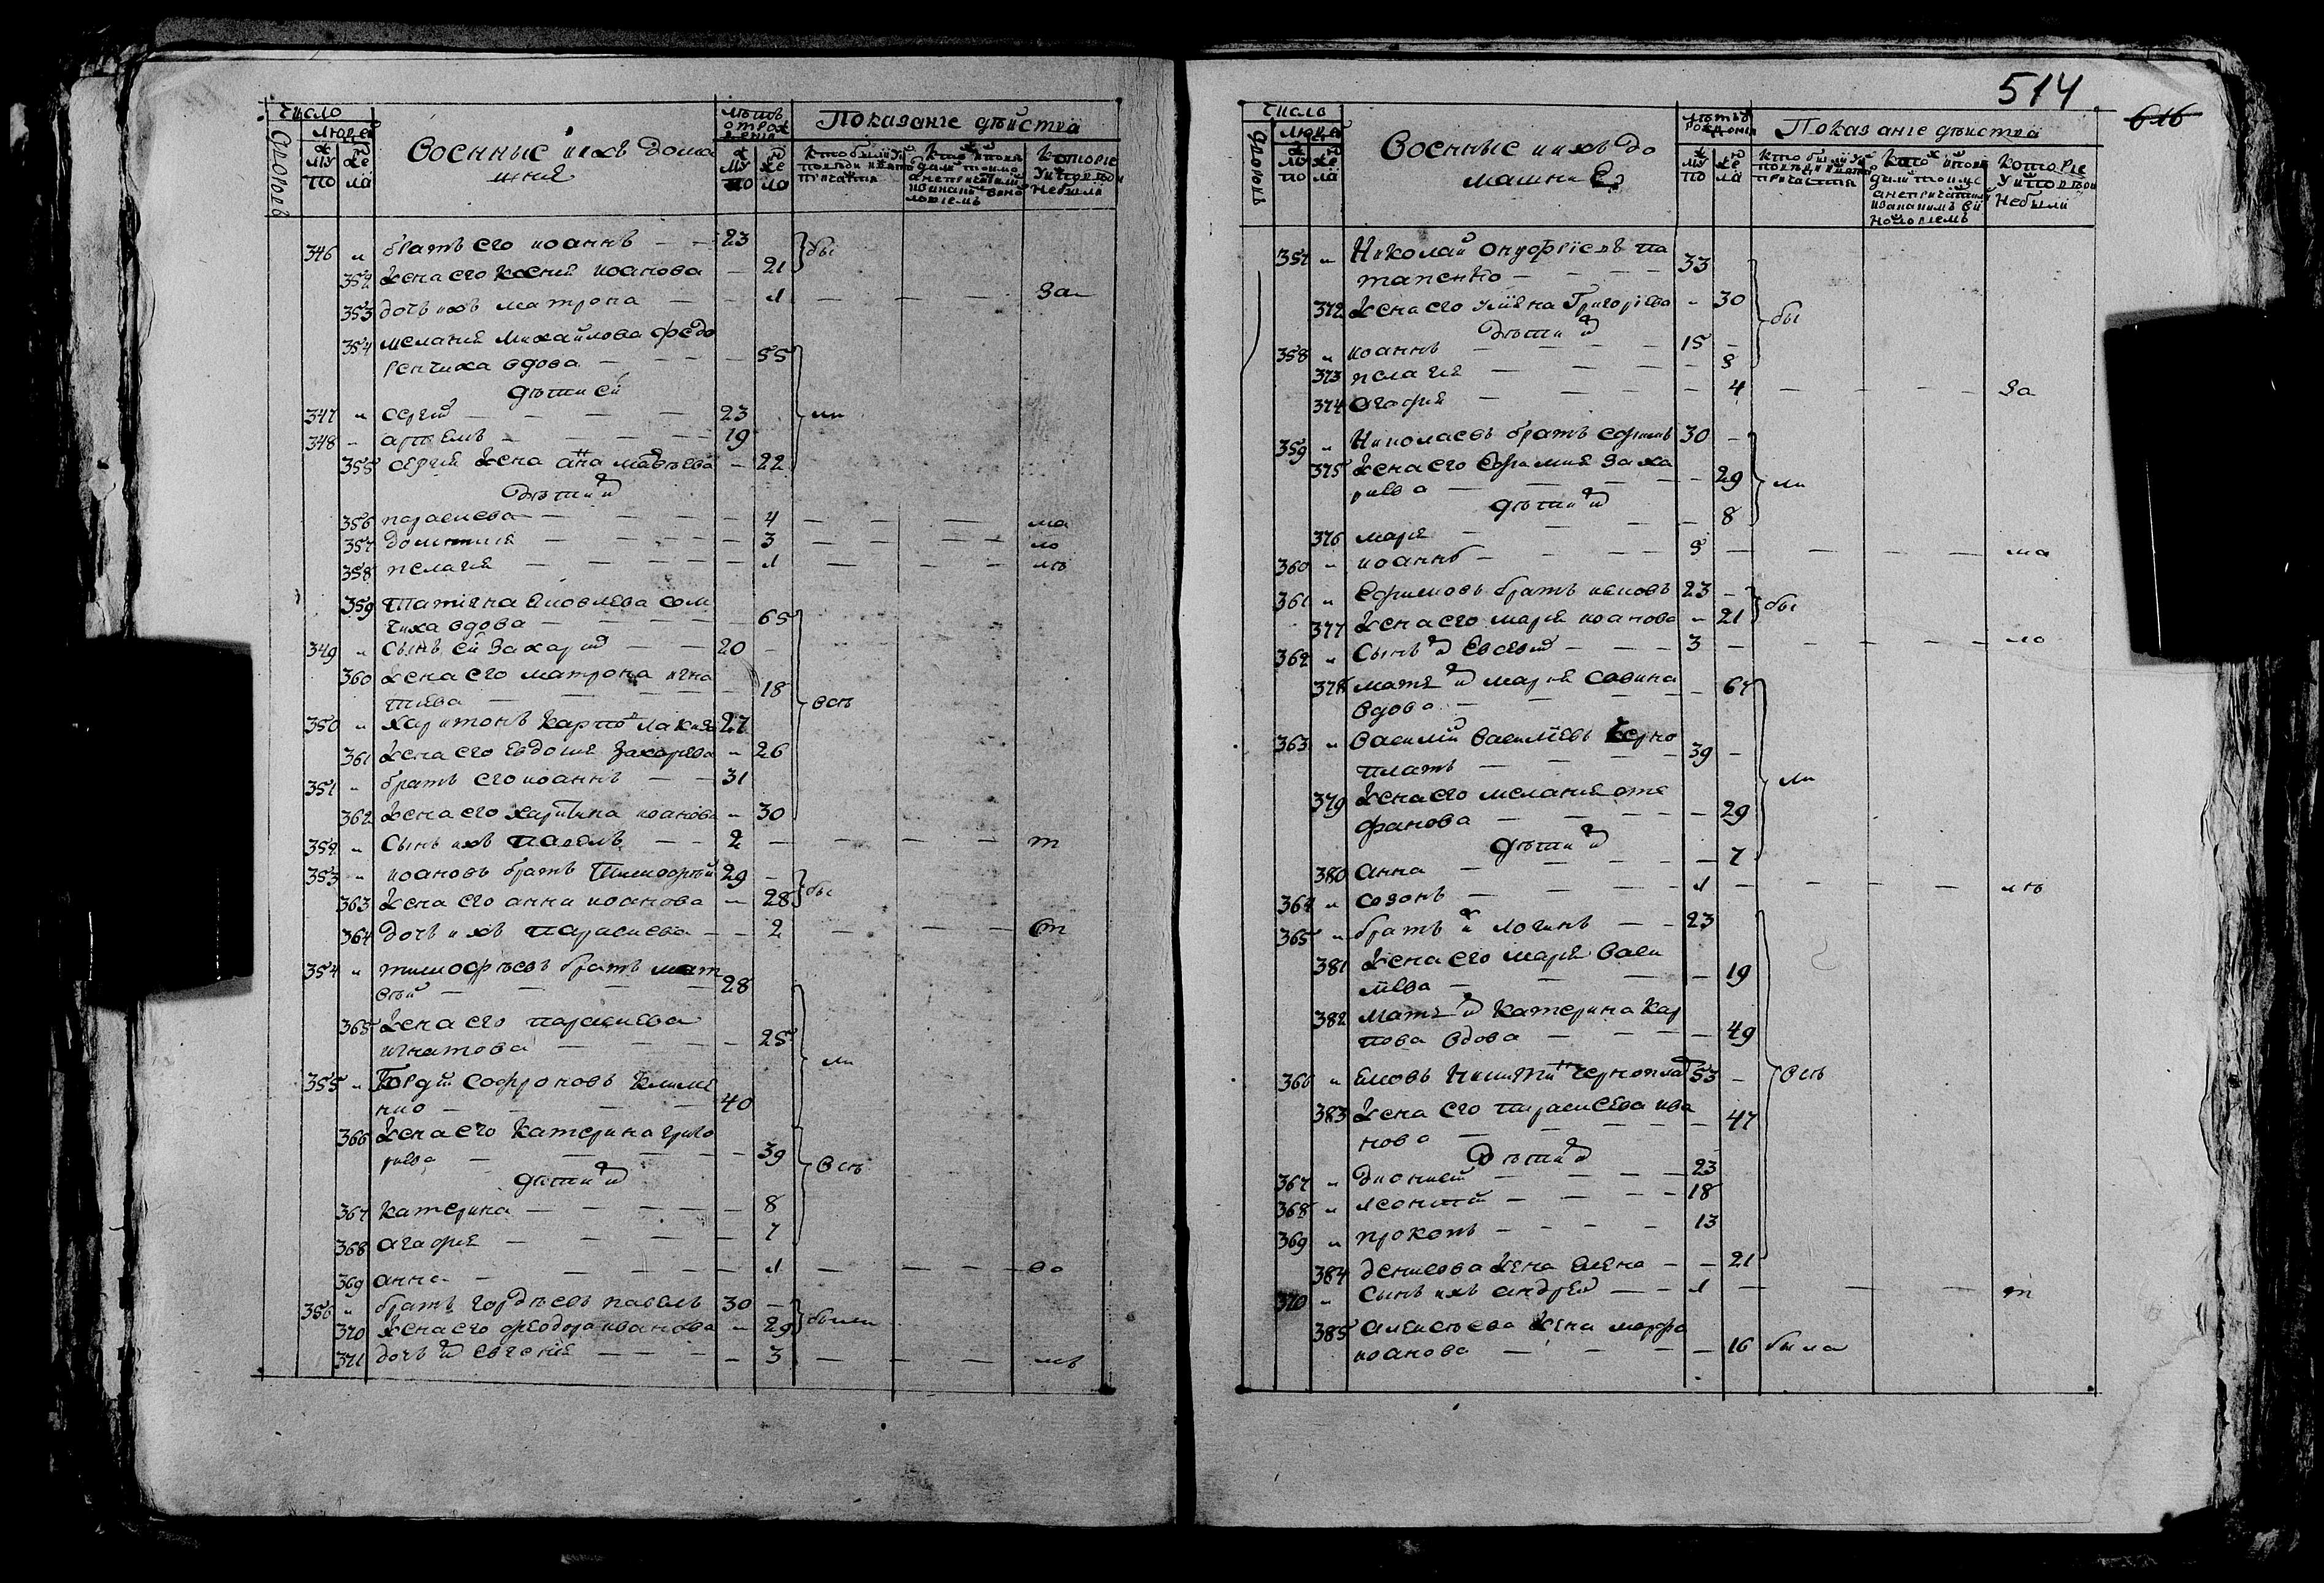 число
людей
дворовъ
му по
же ла
Военные и ихъ дома
шние
лѣтъ
от рож
дения
му по
же ла
Показание дѣйства
346 " братъ его иоаннъ — — 23 бы
352 жена его Ксения иоанова — 21
353 дочь ихъ матрона — — 1 — — — за
354 мелания Михайлова федо
ренчиха вдова — — — — 55
дѣти ей
347 " сергий — — — — 23 ли
348 " артемъ — — — — 19
355 сергия жена анна матвѣева — 22
дѣти их
356 параскева — — — — 4 — — — ма
357 домникия — — — — 3 — — — ло
358 пелагия — — — — 1 — — — лѣ
359 татияна яковлева сом
чиха вдова — — — — 65
349 " сынъ ей Захарий — — 20 —
360 жена его матрона игна
тиева — — — — 18 всѣ
350 " харитонъ карпо 27
361 жена его евдокия захариева — 26
351 " братъ его иоаннъ — — 31
362 жена его харитина иоанова — 30
352 " сынъ ихъ павелъ — — 2 — — — — т
353 " иоановъ братъ тимофей 29 — бы
363 жена его анна иоанова — 28
364 дочь ихъ параскева — — 2 — — — т
354 " тимофѣевъ братъ мат
вѣй — — — — 28
365 жена его параскева
игнатова — — — — 25 ли
355 " Гордѣй софроновъ климе
нко — — — 40
366 жена его катерина григо
риева — — — — 39 всѣ
дѣти их
367 катерина — — — — — 8
368 агафия — — — — 7
369 анна — — — — 1 — — — —
356 " братъ гордѣевъ павелъ 30 — были
370 жена его феодора иванова — 29
371 дочь их евгения — — — — 3 — — — лѣ
514
616
число
людей
дворовъ
му по
же ла
Военные и ихъ до
машние
лѣтъ от
рождения
му по
же ла
Показание дѣйства
357 " Николай онуфриевъ па
тапенко — — — — 33
372 жена его улияна Григориева — 30 бы
дѣти их
358 " иоаннъ — — — — 15 —
373 пелагия — — — — 8
374 агафия — — — — 4 — — — за
359 " Николаевъ братъ ефимъ 30 —
375 жена его Ефимия заха
риева — — — — 29 ли
дѣти их
376 мария — — — — 8
360 " иоаннъ — — — — 5 — — — — ма
361 " Ефимовъ братъ иаковъ 23 — бы
377 жена его мария иоанова — 21
362 " сынъ их Евсевий — — — 3 — — — — ло
378 мати их мария савина
вдова — — — 67
363 " Василий Василиевъ черно
платъ — — — — 39 — ли
379 жена его мелания сте
фанова — — — — 29
дѣти их
380 анна — — — — 7
364 " созонъ — — — — 1 — — — — лѣ
365 " братъ их логинъ — — 23
381 жена его мария васи
лиева — — — 19
382 мати их катерина кар
пова вдова — — — 49
366 " яковъ никитинъ чернопла 53 — всѣ
383 жена его параскева ива
нова — — — — 47
Дѣти их
367 " дионисий — — — — 23
368 " леонтий — — — — 18
369 " прокопъ — — — — 13
384 денисова жена елена — — 21
370 " сынъ ихъ андрей — — 1 — — — — т
385 алексѣева жена марфа
иоанова — — — — 16 была